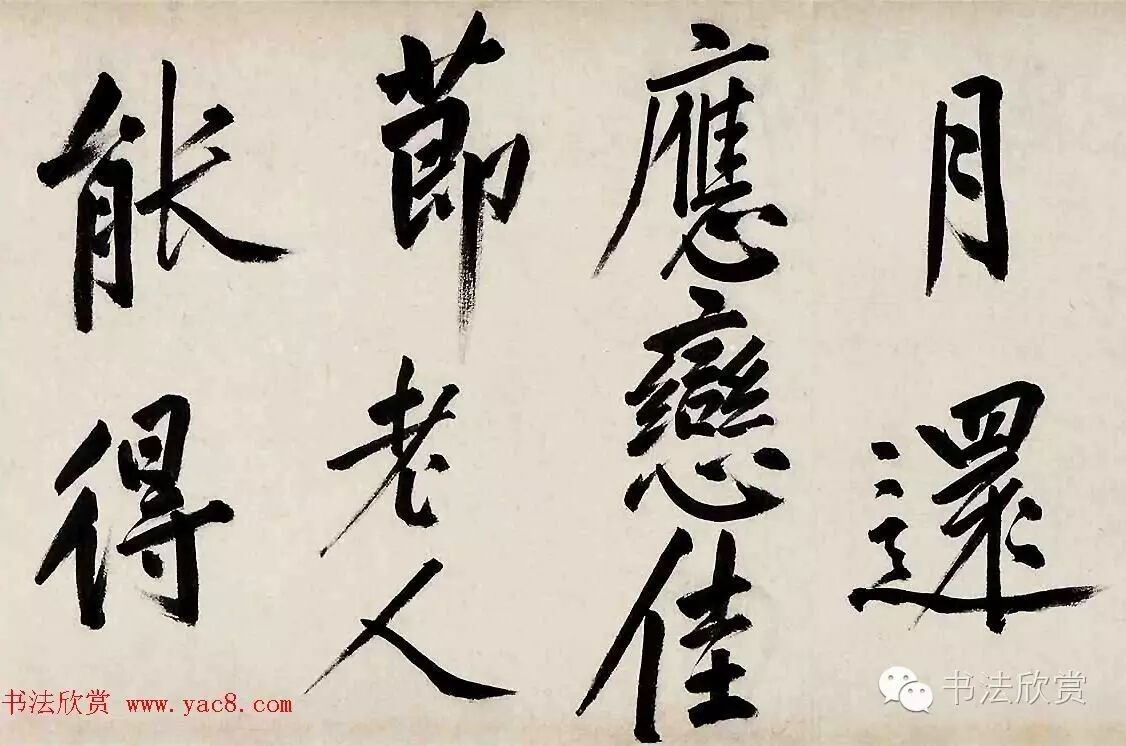 月還
應戀佳
節老人
能得
书法欣赏 www.yac8.com
书法欣赏